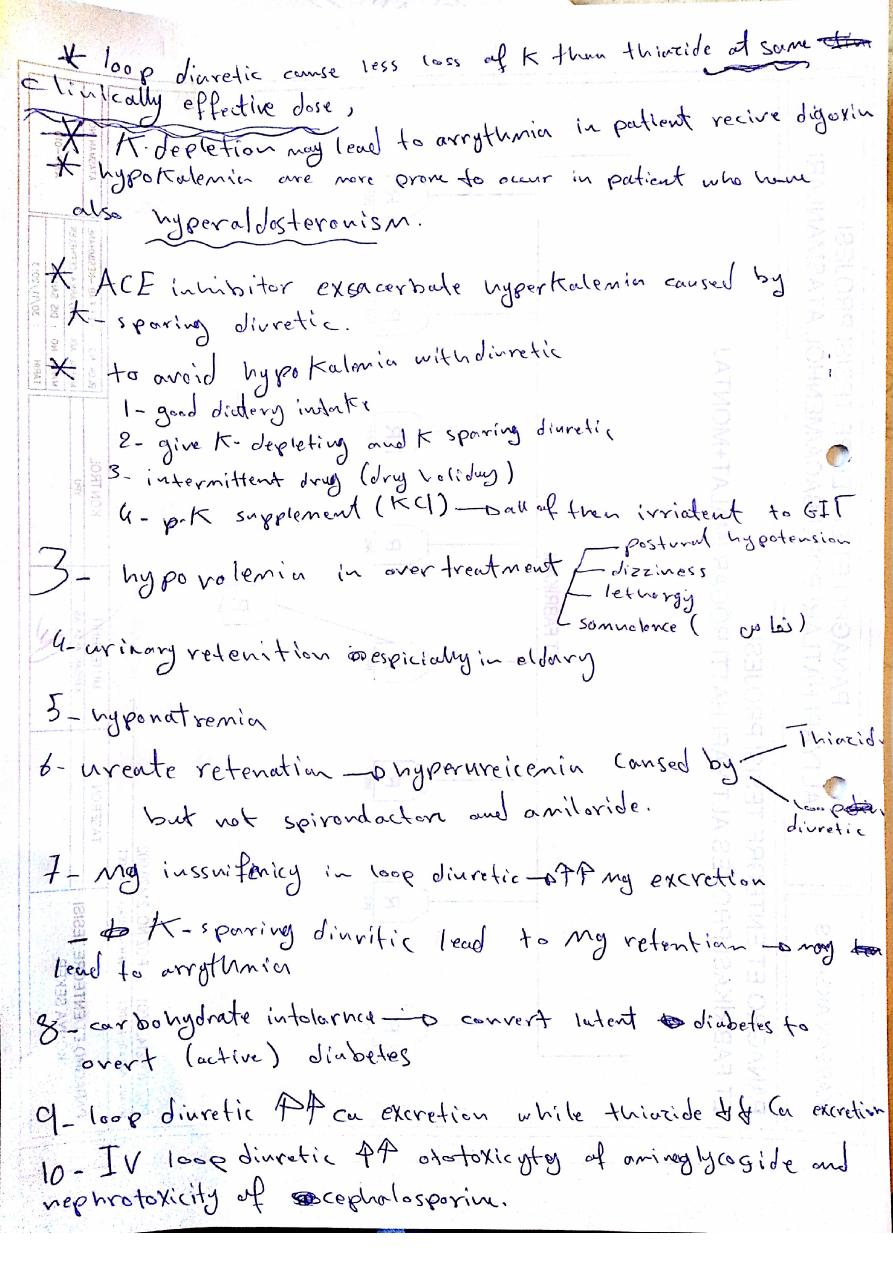 * loop diuretic cause less loss of K than thiazide at same
clinically effective dose,
* K-depletion may lead to arrythmia in patient recive digoxin
* hypokalemia are more prone to occur in patient who have
also hyperaldosteronism.
* ACE inhibitor exsacerbate hyperkalemia caused by
K-sparing diuretic.
* to avoid hypokalemia with diuretic
1- good dietery intake
2- give K-depleting and K sparing diuretic
3- intermittent drug (drug holiday)
4- K supplement (KCl) → all of them irriatent to GIT
3- hypovolemia in over treatment
postural hypotension
dizziness
lethorgy
somnolence (نعاس)
4- urinary retenition espicially in eldary
5- hyponatremia
6- ureate retenation → hyperureicemia caused by
Thiazid
loop
diuretic
but not spirondacton and amiloride.
7- Mg in loop diuretic → ↑↑ Mg excretion
- K-sparing diuritic lead to Mg retention → may
lead to arrythmia
8- carbohydrate intolarnce → convert latent diabetes to
overt (active) diabetes
9- loop diuretic ↑↑ Ca excretion while thiazide ↓↓ Ca excretion
10- IV loop diuretic ↑↑ ototoxicyty of aminoglycoside and
nephrotoxicity of cephalosporine.